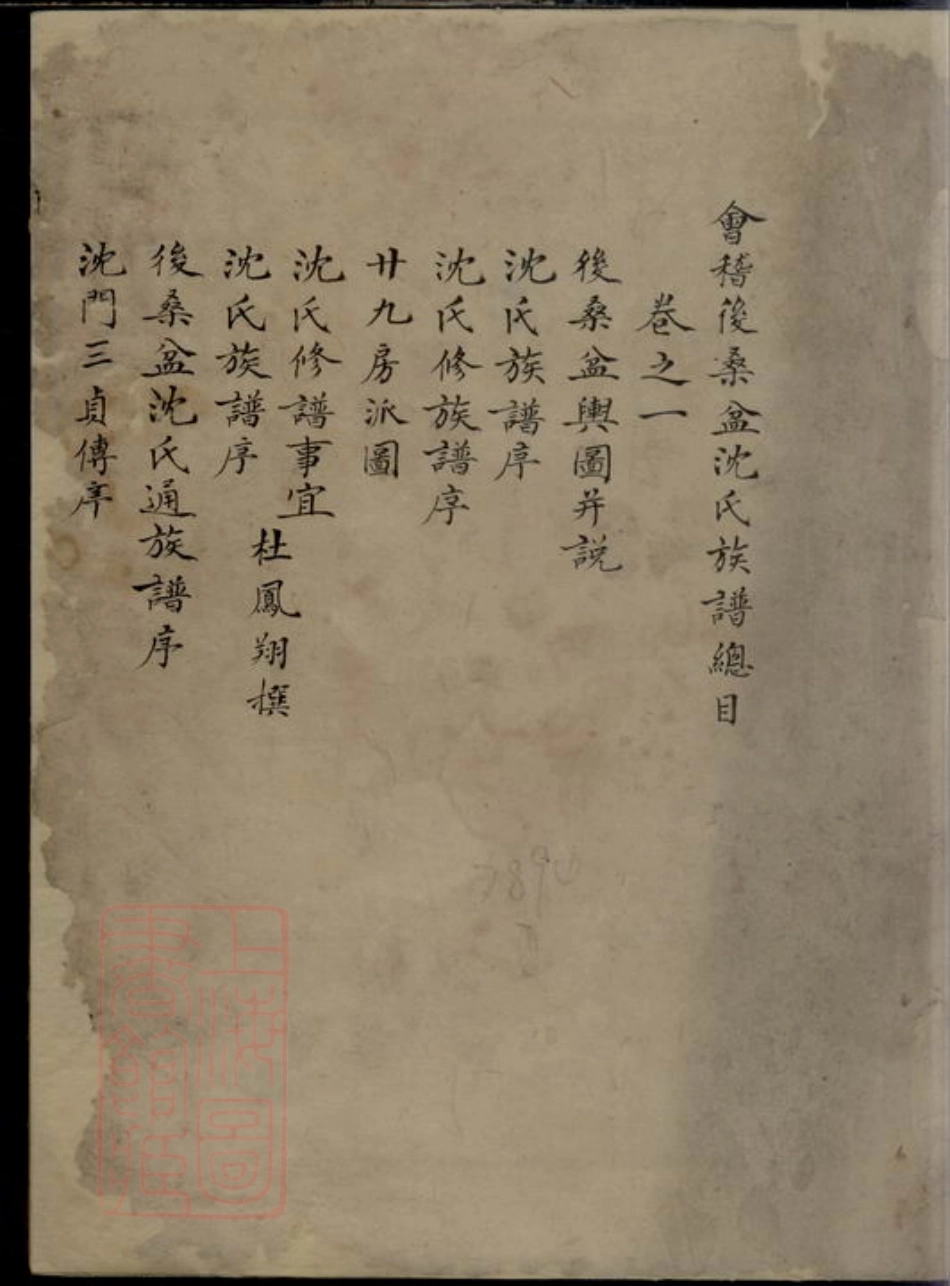 會稽後桑盆沈氏族譜總目
卷之一
後桑盆輿圖并説
沈氏族譜序
沈氏修族譜序
廿九房派圖
沈氏修譜事宜
沈氏族譜序 杜鳳翔撰
後桑盆沈氏通族譜序
沈門三貞傳序
上海圖
書館藏